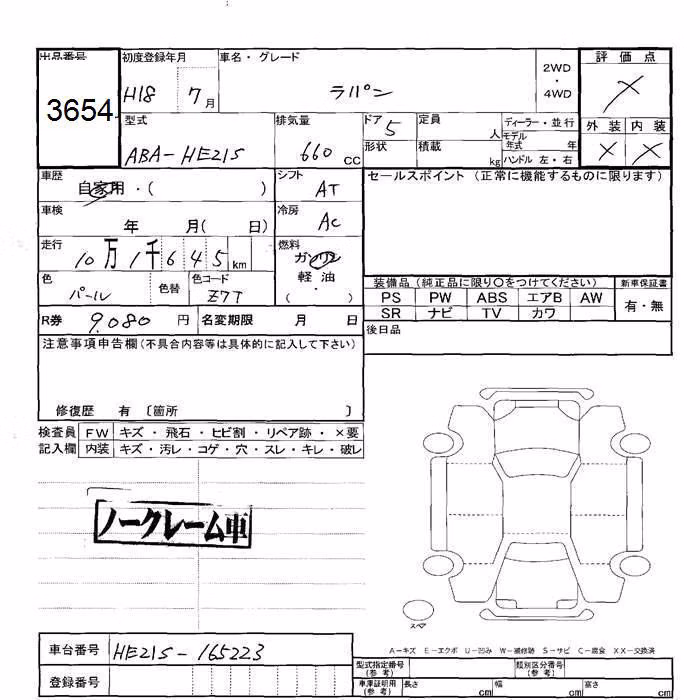 出品番号 初度登録年月 車名・グレード 2WD・4WD 評価点
3654 H18 7月 ラパン ×
型式 排気量 ドア 5 定員 人 ディーラー・並行 外装 内装
ABA-HE21S 660 CC 形状 積載 kg モデル年式 年 × ×
ハンドル 左・右
車歴 自家用・( ) シフト AT セールスポイント (正常に機能するものに限ります)
車検 年 月( 日) 冷房 AC
走行 10万1千645km 燃料 ガソリン
軽油・( )
色 パール 色替 色コード Z7T
装備品 (純正品に限り○をつけてください) 新車保証書
PS PW ABS エアB AW 有・無
SR ナビ TV カワ
R券 9,080円 名変期限 月 日
後日品
注意事項申告欄(不具合内容等は具体的に記入して下さい)
修復歴 有 〔箇所 〕
検査員 FW キズ・飛石・ヒビ割・リペア跡・×要
記入欄 内装 キズ・汚レ・コゲ・穴・スレ・キレ・破レ
ノークレーム車
スペア
A-キズ E-エクボ U-凹み W-補修跡 S-サビ C-腐食 XX-交換済
車台番号 HE21S-165223
登録番号
型式指定番号(参考) 類別区分番号(参考)
車庫証明用(参考) 長さ cm 幅 cm 高さ cm